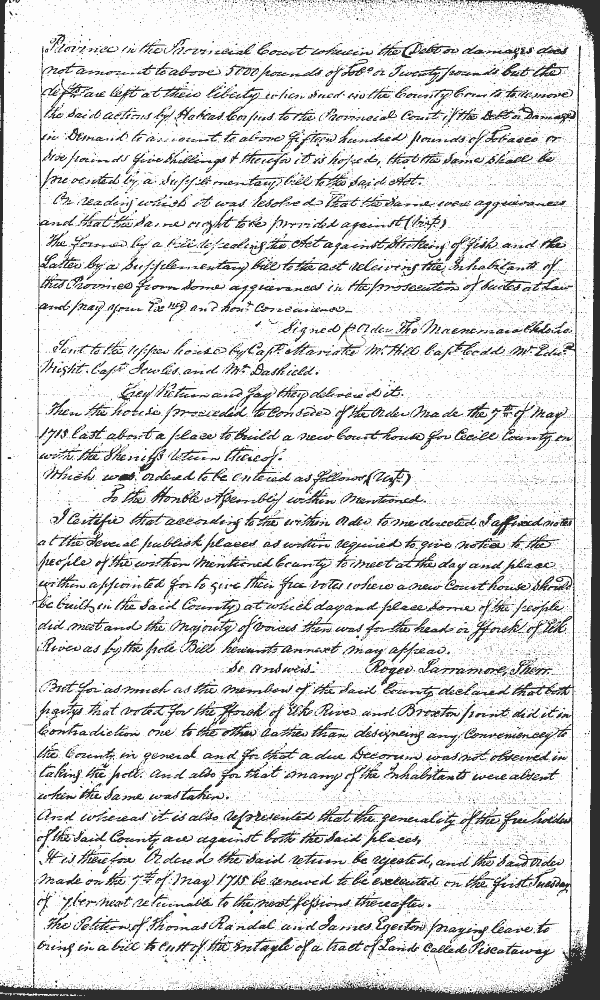 Province in the Provincial Court wherein the Debt or damages does
not amount to above 5000 pounds of Tobo or Twenty pounds but the
defts are left at their liberty when sued in the County Courts to remove
the said actions by Habeas Corpus to the Provincial Court if the Debt or Damages
in Demand to amount to above fifteen hundred pounds of Tobacco or
six pounds five shillings & therefore it is hoped, that the same shall be
prevented by a Supplementary bill to the said Act.
On reading which it was resolved that the same were aggrievances
and that the same ought to be provided against (Vizt)
The former by a bill repealing the Act against Striking of fish and the
Latter by a Supplementary bill to the act relieving the Inhabitants of
this Province from some aggrievances in the prosecution of suites at Law
and pray your Excncy and honrs Concurrence
Signed p Order Tho Macnemara Clk
Sent to the upper house by Capt Mariotte Mr Hill Capt Codd Mr Edwd
Wright. Capt Sewles and Mr Dashield.
They Return and say they delivered it.
Then the house proceeded to Consider of the Order Made the 7th of May
1715 last about a place to build a new Court house for Cecill County on
with the Sheriffs return thereof.
Which was ordered to be entered as follows (Vizt)
To the Honble Assembly within Mentioned.
I Certifie that according to the within Order to me directed I affixed notes
at the several publick places as within required to give notice to the
people of the within Mentioned County to meet at the day and place
within appointed for to give their free votes where a new Court house should
be built, in the said County, at which day and place some of the people
did meet and the Majority of voices then was for the head or fforck of Elk
River as by the pole Bill hereunto annext may appear.
So Answers. Roger Larramore, Sherr.
But for as much as the member of the said County declared that both
partys that voted for the fforck of Elk River and Broxton point did it in
Contradiction one to the other rather than designing any Conveniency to
the County in general and for that a due Decorum was not observed in
taking the pole. And also for that many of the Inhabitants were absent
when the same was taken.
And whereas it is also represented that the generality of the freeholders
of the said County are against both the said places,
It is therefore Ordered the said return be rejected, and the said order
made on the 7th of May 1715 be renewed to be executed on the first Tuesday
of 7ber next returnable to the next sessions thereafter.
The Petition of Thomas Randal and James Egerton praying leave to
bring in a bill to cutt of the entayle of a tract of Lands Called Piscataway